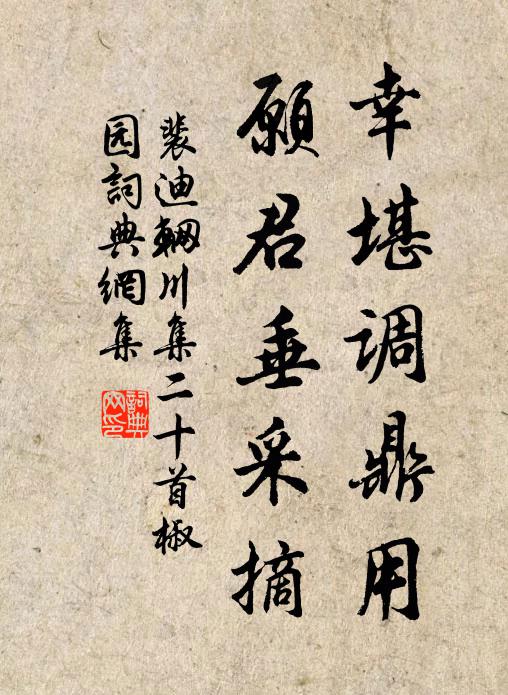 幸堪调鼎用
願君垂采摘
裴迪輞川集二十首椒
园詞典網集
詞典
网印